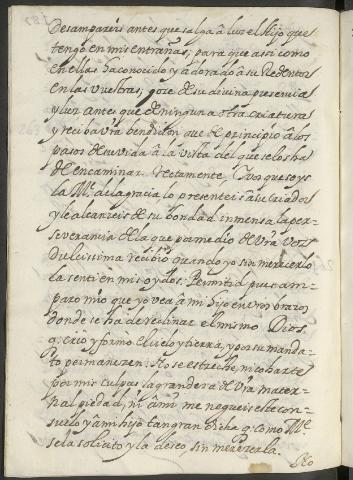 desampareis antes que salga à luz el Hijo que
tengo en mis entrañas; para que assi como
en ellas ha conocido y adorado à su Redentor
en las vuestras; goze de su divina presencia
y luz antes que de ninguna otra criatura
y reciba vra bendicion que de principio à los
pasos de su vida à la vista del que selos ha
de encaminar rectamente, Y vos que soys
la Me. de la gracia lo presenteis à su Criador
y le alcanzeis de su bondad inmensa la per-
severancia de la que por medio de vra voz
dulcissima recibio quando yo sin merecerlo
la senti en mis oydos. Permitid pues am-
paro mio que yo vea à mi hijo en vros brazos
donde se ha de reclinar el mismo Dios
q. criò y formo el cielo y tierra, y por su manda-
to permanezen. No se estreche, ni coharte
por mis culpas la grandeza de vra mater-
nal piedad, ni à mi me negueis este con-
suelo y à mi hijo tan gran dicha q. como Me.
se la solicito y la deseo sin merezerla.